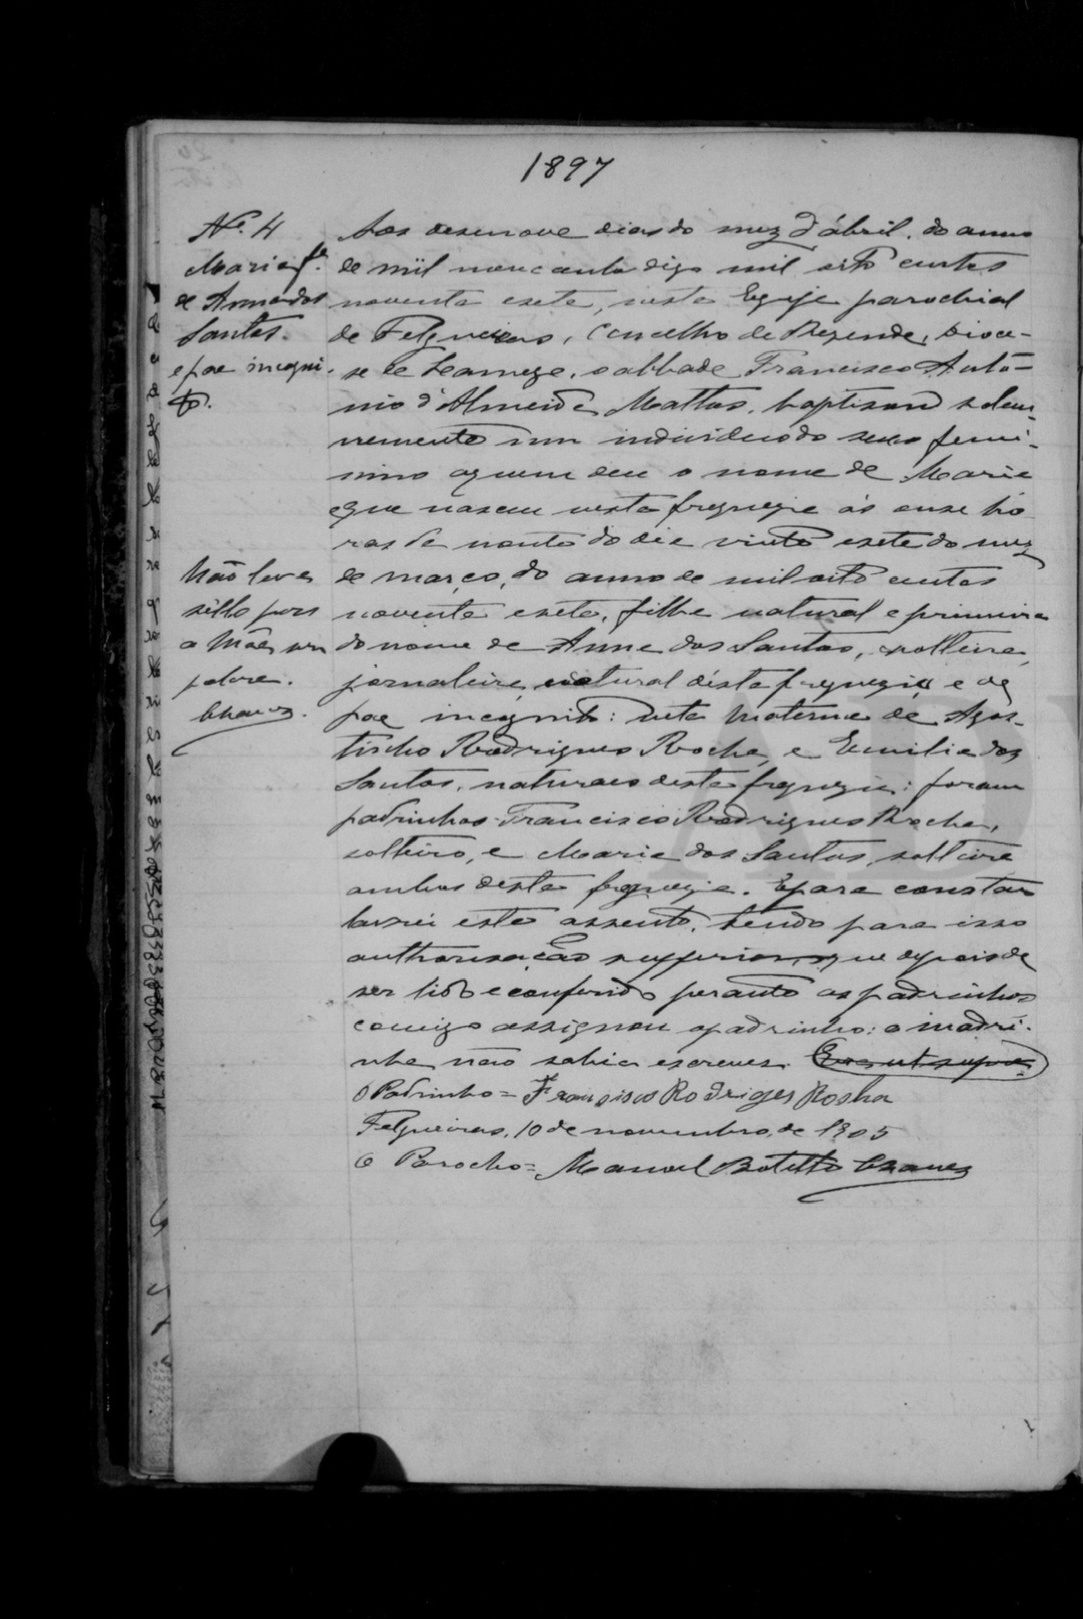 1897
Nº. 4
Maria fª.
de Anna dos
Santos.
e pae incogni-
to.
Aos desenove dias do mez d'ábril. do anno
de mil nove centos digo mil oito centos
noventa e sete, nesta Egreja parochial
de Felgueiras, Concelho de Rezende, Dioce-
se de Lamego. o abbade Francisco Antó-
nio d'Almeida Mattos. baptisou solem-
nemente um individuo do sexo femi-
nino a quem deu o nome de Maria
e que nasceu nesta freguezia ás onze ho-
ras da noute do dia vinte e sete do mez
de março, do anno de mil oito centos
noventa e sete, filha natural e primeira
do nome de Anna dos Santos, solteira,
jornaleira, natural désta freguezia e de
pae incognito: neta materna de Agos-
tinho Rodrigues Rocha, e Emilia dos
Santos, naturaes desta freguezia: foram
padrinhos Francisco Rodrigues Rocha,
solteiro, e Maria dos Santos, solteira
ambos desta freguezia. E para constar
lavrei este assento, tendo para isso
authorisação superior, que depois de
ser lido e conferido perante os padrinhos
comigo assignou o padrinho: a madri-
nha não sabia escrever. Era ut supra
O Padrinho = Francisco Rodriges Rosha
Felgueiras, 10 de novembro, de 1905
O Parocho = Manoel Botelho Chaves
Não leva
sêllo por
a Mãe ser
pobre.
Chaves.